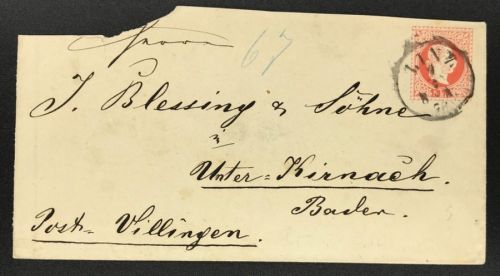 Herrn
67
J. Blessing & Söhne
in
Unter-Kirnach.
Baden.
Post-Villingen.
LINZ